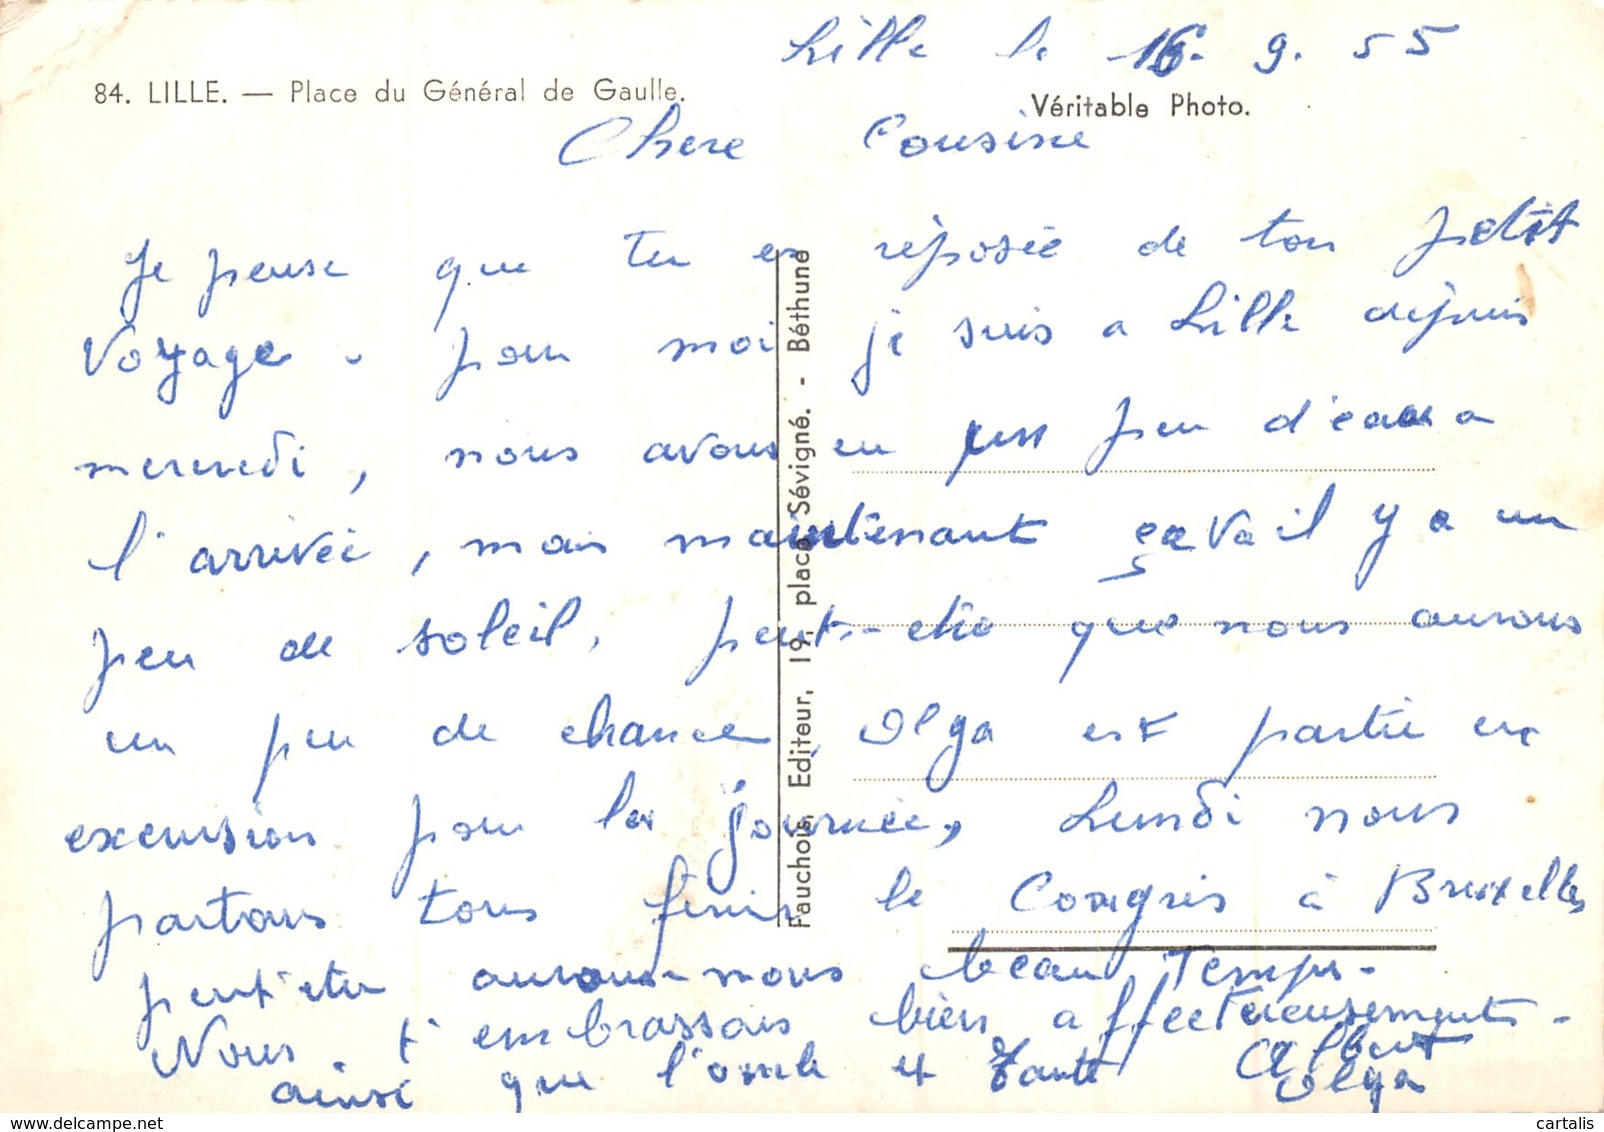 Lille le 16. 9. 55
84. LILLE. — Place du Général de Gaulle.
Véritable Photo.
Chere Cousine
Je pense que tu es réposée de ton petit
Voyage. pour moi je suis a Lille depuis
mercredi, nous avons eu un peu d'eau a
l'arrivée, mais maintenant ça va il y a un
peu de soleil, peut-etre que nous aurons
un peu de chance, Olga est partie en
excursion pour la journée, Lundi nous
partons tous finir le Congrès à Bruxelles
peut'etre aurons-nous beau Temps.
Nous t'embrassons bien affectueusements.
ainsi que l'oncle et Tante Albert
Olga
Fauchois, Editeur, 19, place Sévigné. - Béthune
www.delcampe.net
cartalis